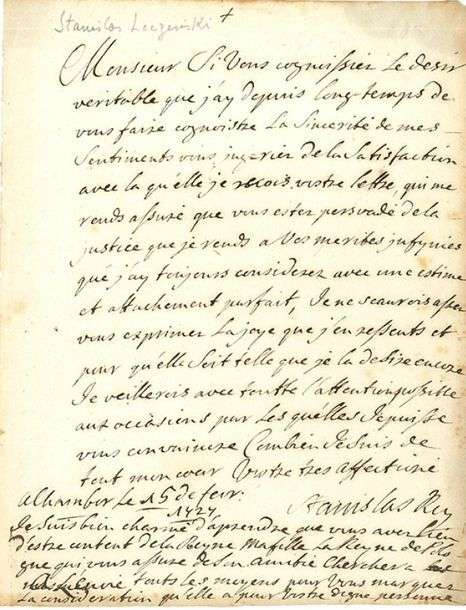 Stanislas Leczenski
Monsieur Si Vous cognoissiez Le desir
veritable que j'ay depuis long-temps de
vous faire cognoistre La Sincerité de mes
Sentiments vous jugeriez de la Satisfaction
avec la qu'elle je recois vostre lettre, qui me
rends assuré que vous estez persuadé de la
justice que je rends a Vos merites
que j'ay toujours considerez avec une estime
et attachement parfait, Je ne scaurois assez
vous exprimer La joye que j'en ressents et
pour qu'elle Soit telle que je la desire encore
Je veillerois avec toutte l'attention possible
aux occasions par Les quelles Je puisse
vous convaincre Combien Je Suis de
tout mon coeur Vostre tres affectioné
a Chambor Le 15 de fevr: Stanislas Roy
1727
Je Suis bien charmé d'aprendre que vous avez Lieu
d'estre content de la Reyne ma fille La Reyne
que qui vous assure de Son amitié Cherchera
touts Les moyens pour Vous marquer
La consideration qu'elle a pour Vostre digne personne